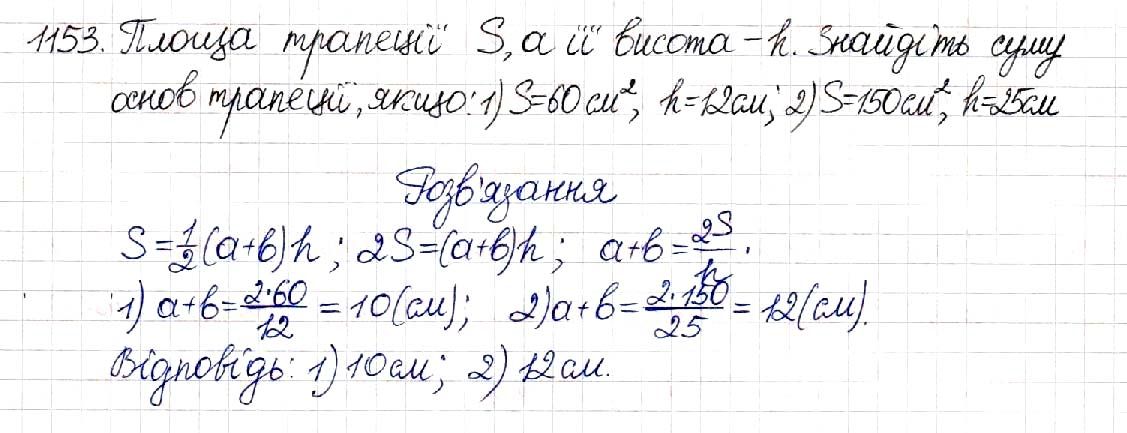 1153. Площа трапеції S, а її висота – h. Знайдіть суму
основ трапеції, якщо: 1) S=60 см², h=12 см; 2) S=150 см², h=25 см
Розв'язання
S = 1/2 (a+b)h ; 2S=(a+b)h ; a+b = 2S/h .
1) a+b = 2·60/12 = 10 (см); 2) a+b = 2·150/25 = 12 (см).
Відповідь: 1) 10 см; 2) 12 см.